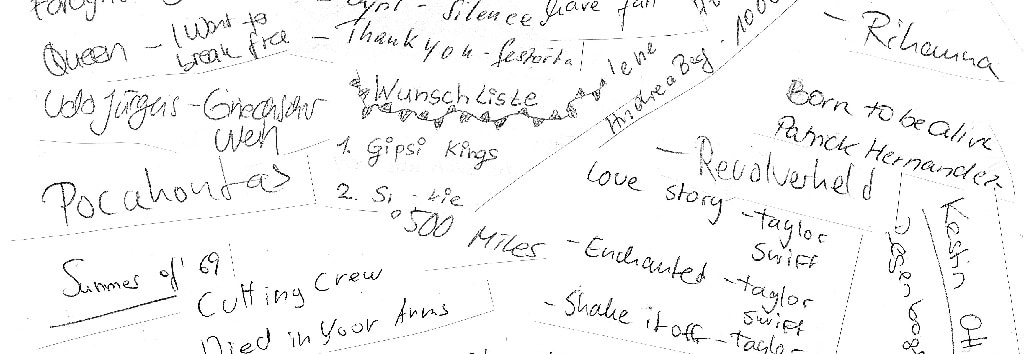 Queen - I Want to
break free
Udo Jürgens - Griechischer
Wein
Pocahontas
Summer of '69
Cutting Crew
Died in Your Arms
Silence
- Thank you -
Wunschliste
1. Gipsi Kings
2.
500 Miles
Andrea Berg - 1000
- Rihanna
Born to be alive
Patrick Hernandez
- Revolverheld
Love story - Taylor
Swift
- Enchanted - Taylor
Swift
- Shake it off - Taylor
Kestin Ott